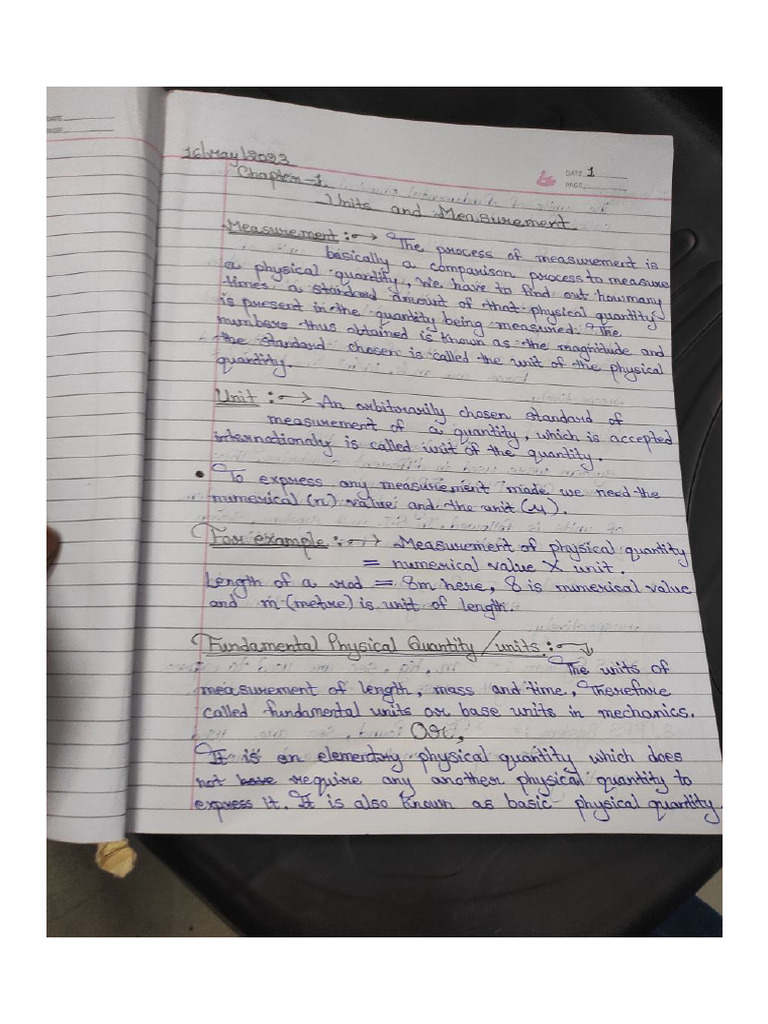 DATE
PAGE
16/May/2023
DATE 1
PAGE
Chapter-1.
Units and Measurement.
Measurement :-> The process of measurement is
basically a comparison process to measure
a physical quantity, we have to find out how many
times a standard amount of that physical quantity
is present in the quantity being measured. The
numbers thus obtained is known as the magnitude and
the standard chosen is called the unit of the physical
quantity.
Unit :-> An arbitrarily chosen standard of
measurement of a quantity, which is accepted
internationaly is called unit of the quantity.
• To express any measurement made we need the
numerical (n) value and the unit (u).
For example :-> Measurement of physical quantity
= numerical value X unit.
Length of a rod = 8m here, 8 is numerical value
and m (metre) is unit of length.
Fundamental Physical Quantity/units :->
The units of
measurement of length, mass and time, Therefore
called fundamental units or base units in mechanics.
Or,
It is an elementary physical quantity which does
not have require any another physical quantity to
express it. It is also known as basic physical quantity